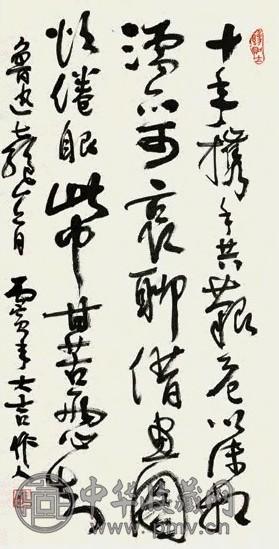 十年携手共艱危以沫相
濡亦可哀聊借畫圖
怡倦眼此中甘苦兩心知
魯迅 寅年大吉作
中华收藏网
www.pmv.cn